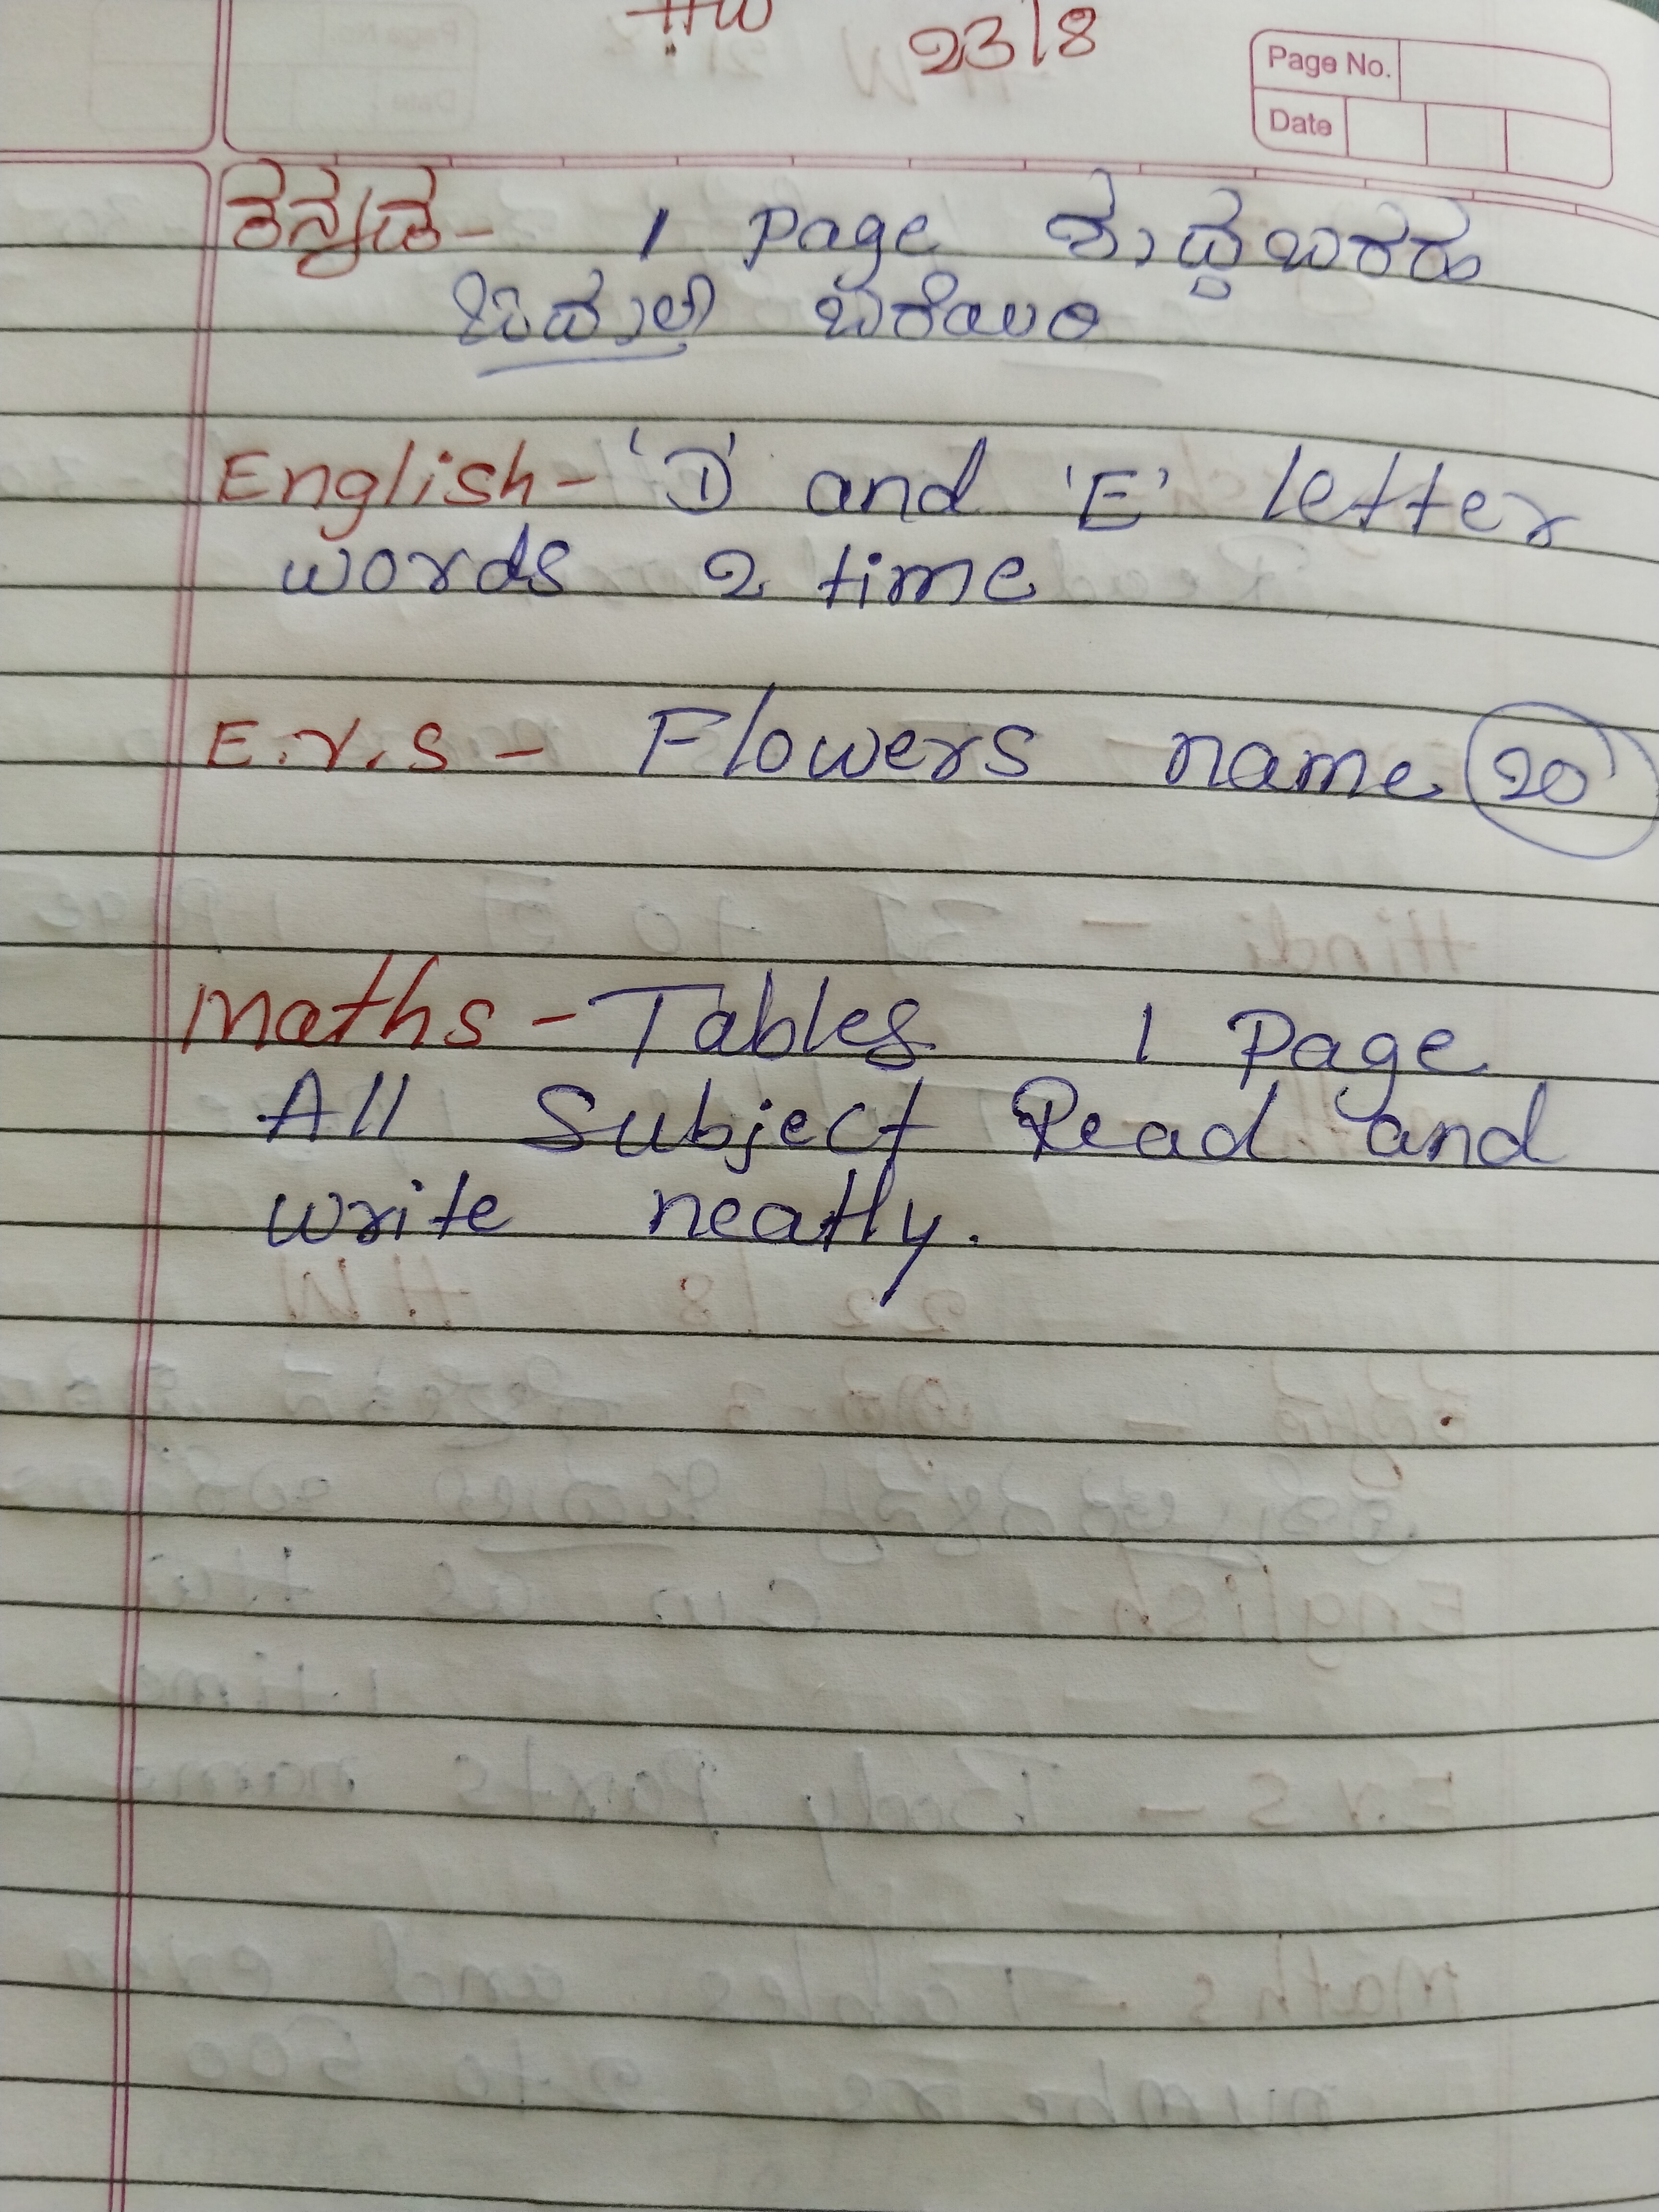 HW 23/8
Page No.
Date
ಕನ್ನಡ - 1 page ಶುದ್ಧಬರಹ
ಬರೆಯಿರಿ
English - 'D' and 'E' letter
words 2 time
E.V.S - Flowers name 20
Maths - Tables 1 Page
All Subject Read and
write neatly.